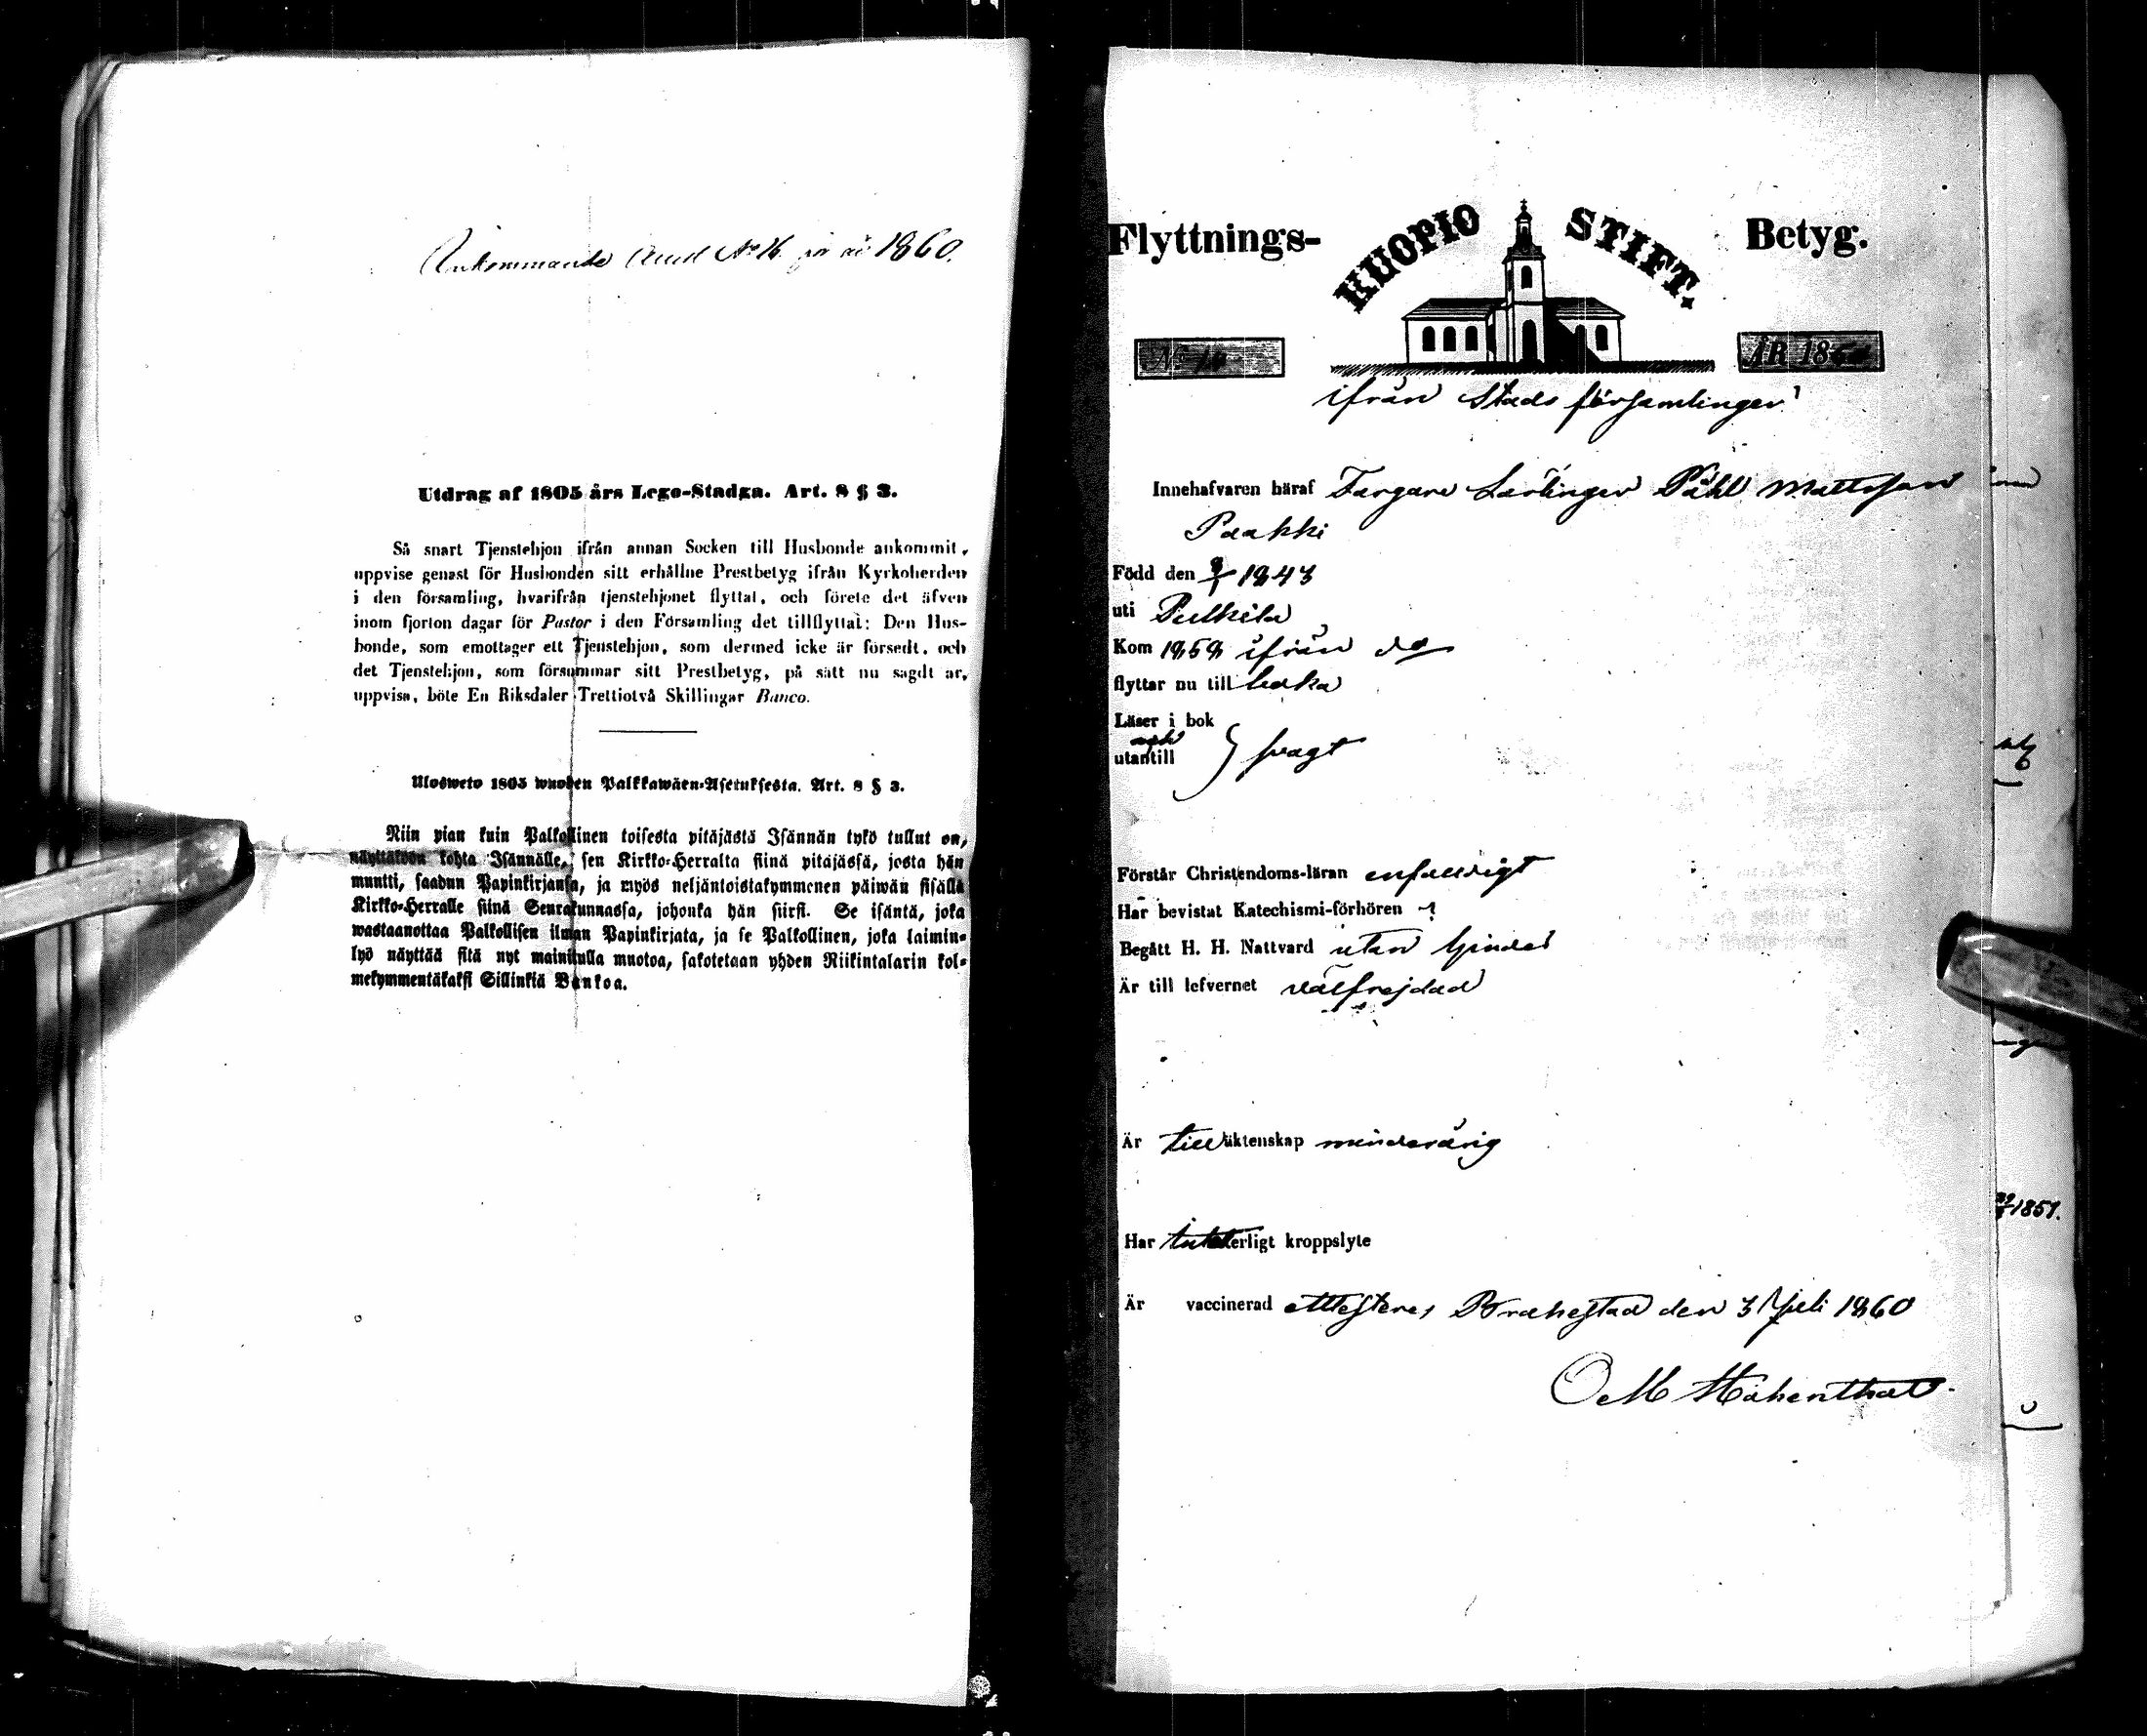 Ankommande Attest No 16 för år 1860.
Utdrag af 1805 års Lego-Stadga. Art. 8 § 3.
Så snart Tjenstehjon ifrån annan Socken till Husbonde ankommit,
uppvise genast för Husbonden sitt erhållne Prestbetyg ifrån Kyrkoherden
i den församling, hvarifrån tjenstehjonet flyttat, och förete det äfven
inom fjorton dagar för Pastor i den Församling det tillflyttat: Den Hus-
bonde, som emottager ett Tjenstehjon, som dermed icke är försedt, och
det Tjenstehjon, som försummar sitt Prestbetyg, på sätt nu sagdt är,
uppvisa, böte En Riksdaler Trettiotvå Skillingar Banco.
Ulosweto 1805 wuoden Palkkawäen-Asetuksesta. Art. 8 § 3.
Niin pian kuin Palkollinen toisesta pitäjästä Isännän tykö tullut on,
näyttäköön kohta Isännälle, sen Kirkko-Herralta siinä pitäjässä, josta hän
muutti, saadun Papinkirjansa, ja myös neljäntoistakymmenen päiwän sisällä
Kirkko-Herralle siinä Seurakunnassa, johonka hän siirsi. Se isäntä, joka
wastaanottaa Palkollisen ilman Papinkirjata, ja se Palkollinen, joka laimin-
lyö näyttää sitä nyt mainitulla muotoa, sakotetaan yhden Riikintalarin kol-
mekymmentäkaksi Sillinkiä Bankoa.
Flyttnings- KUOPIO STIFT. Betyg.
No ÅR 1860
ifrån Stads församlingen
Innehafvaren häraf Färgare Lärlingen Påhl Mattsson
Paakki
Född den 9/1 1843
uti Pulkila
Kom 1858 ifrån do
flyttar nu till baka
Läser i bok
och
utantill } svagt
Förstår Christendoms-läran enfaldigt
Har bevistat Katechismi-förhören
Begått H. H. Nattvard utan hinder
Är till lefvernet välfrejdad
Är till äktenskap minderårig
Har intet erligt kroppslyte
Är vaccinerad attesterar Brahestad den 3 Juli 1860
1851.